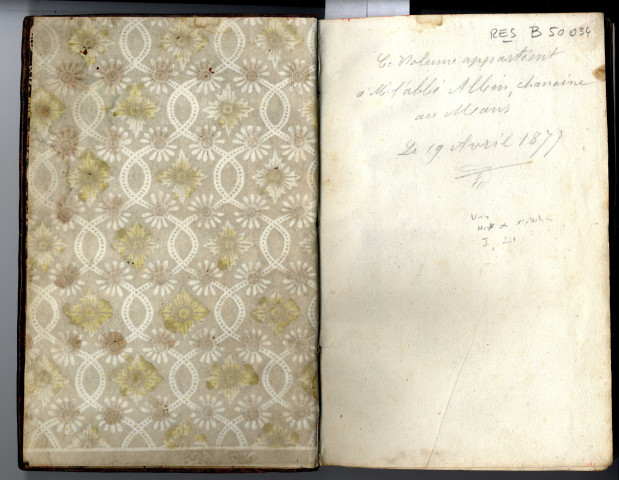 RES B 50 034
Ce Volume appartient
à Mr l'abbé Albin, chanoine
au Mans
Le 19 Avril 1877
Voir
I, 221